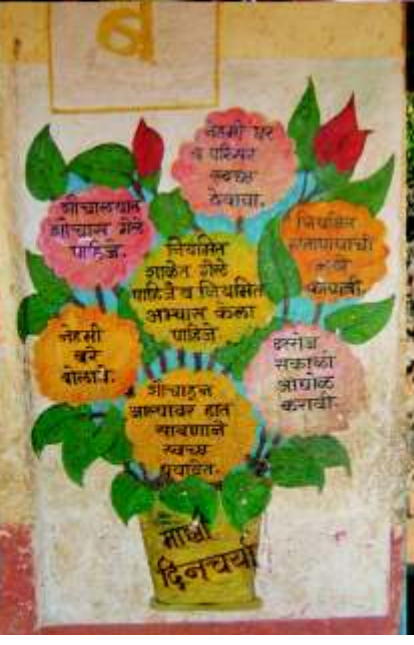 ब
नेहमी घर
व परिसर
स्वच्छ
ठेवावा.
शौचालयात
शौचास गेले
पाहिजे.
नियमित
हातापायाची
नखे
कापावी.
नियमित
शाळेत गेले
पाहिजे व नियमित
अभ्यास केला
पाहिजे
नेहमी
खरे
बोलावे.
दररोज
सकाळी
आंघोळ
करावी.
शौचाहून
आल्यावर हात
साबणाने
स्वच्छ
धुवावेत.
माझी
दिनचर्या